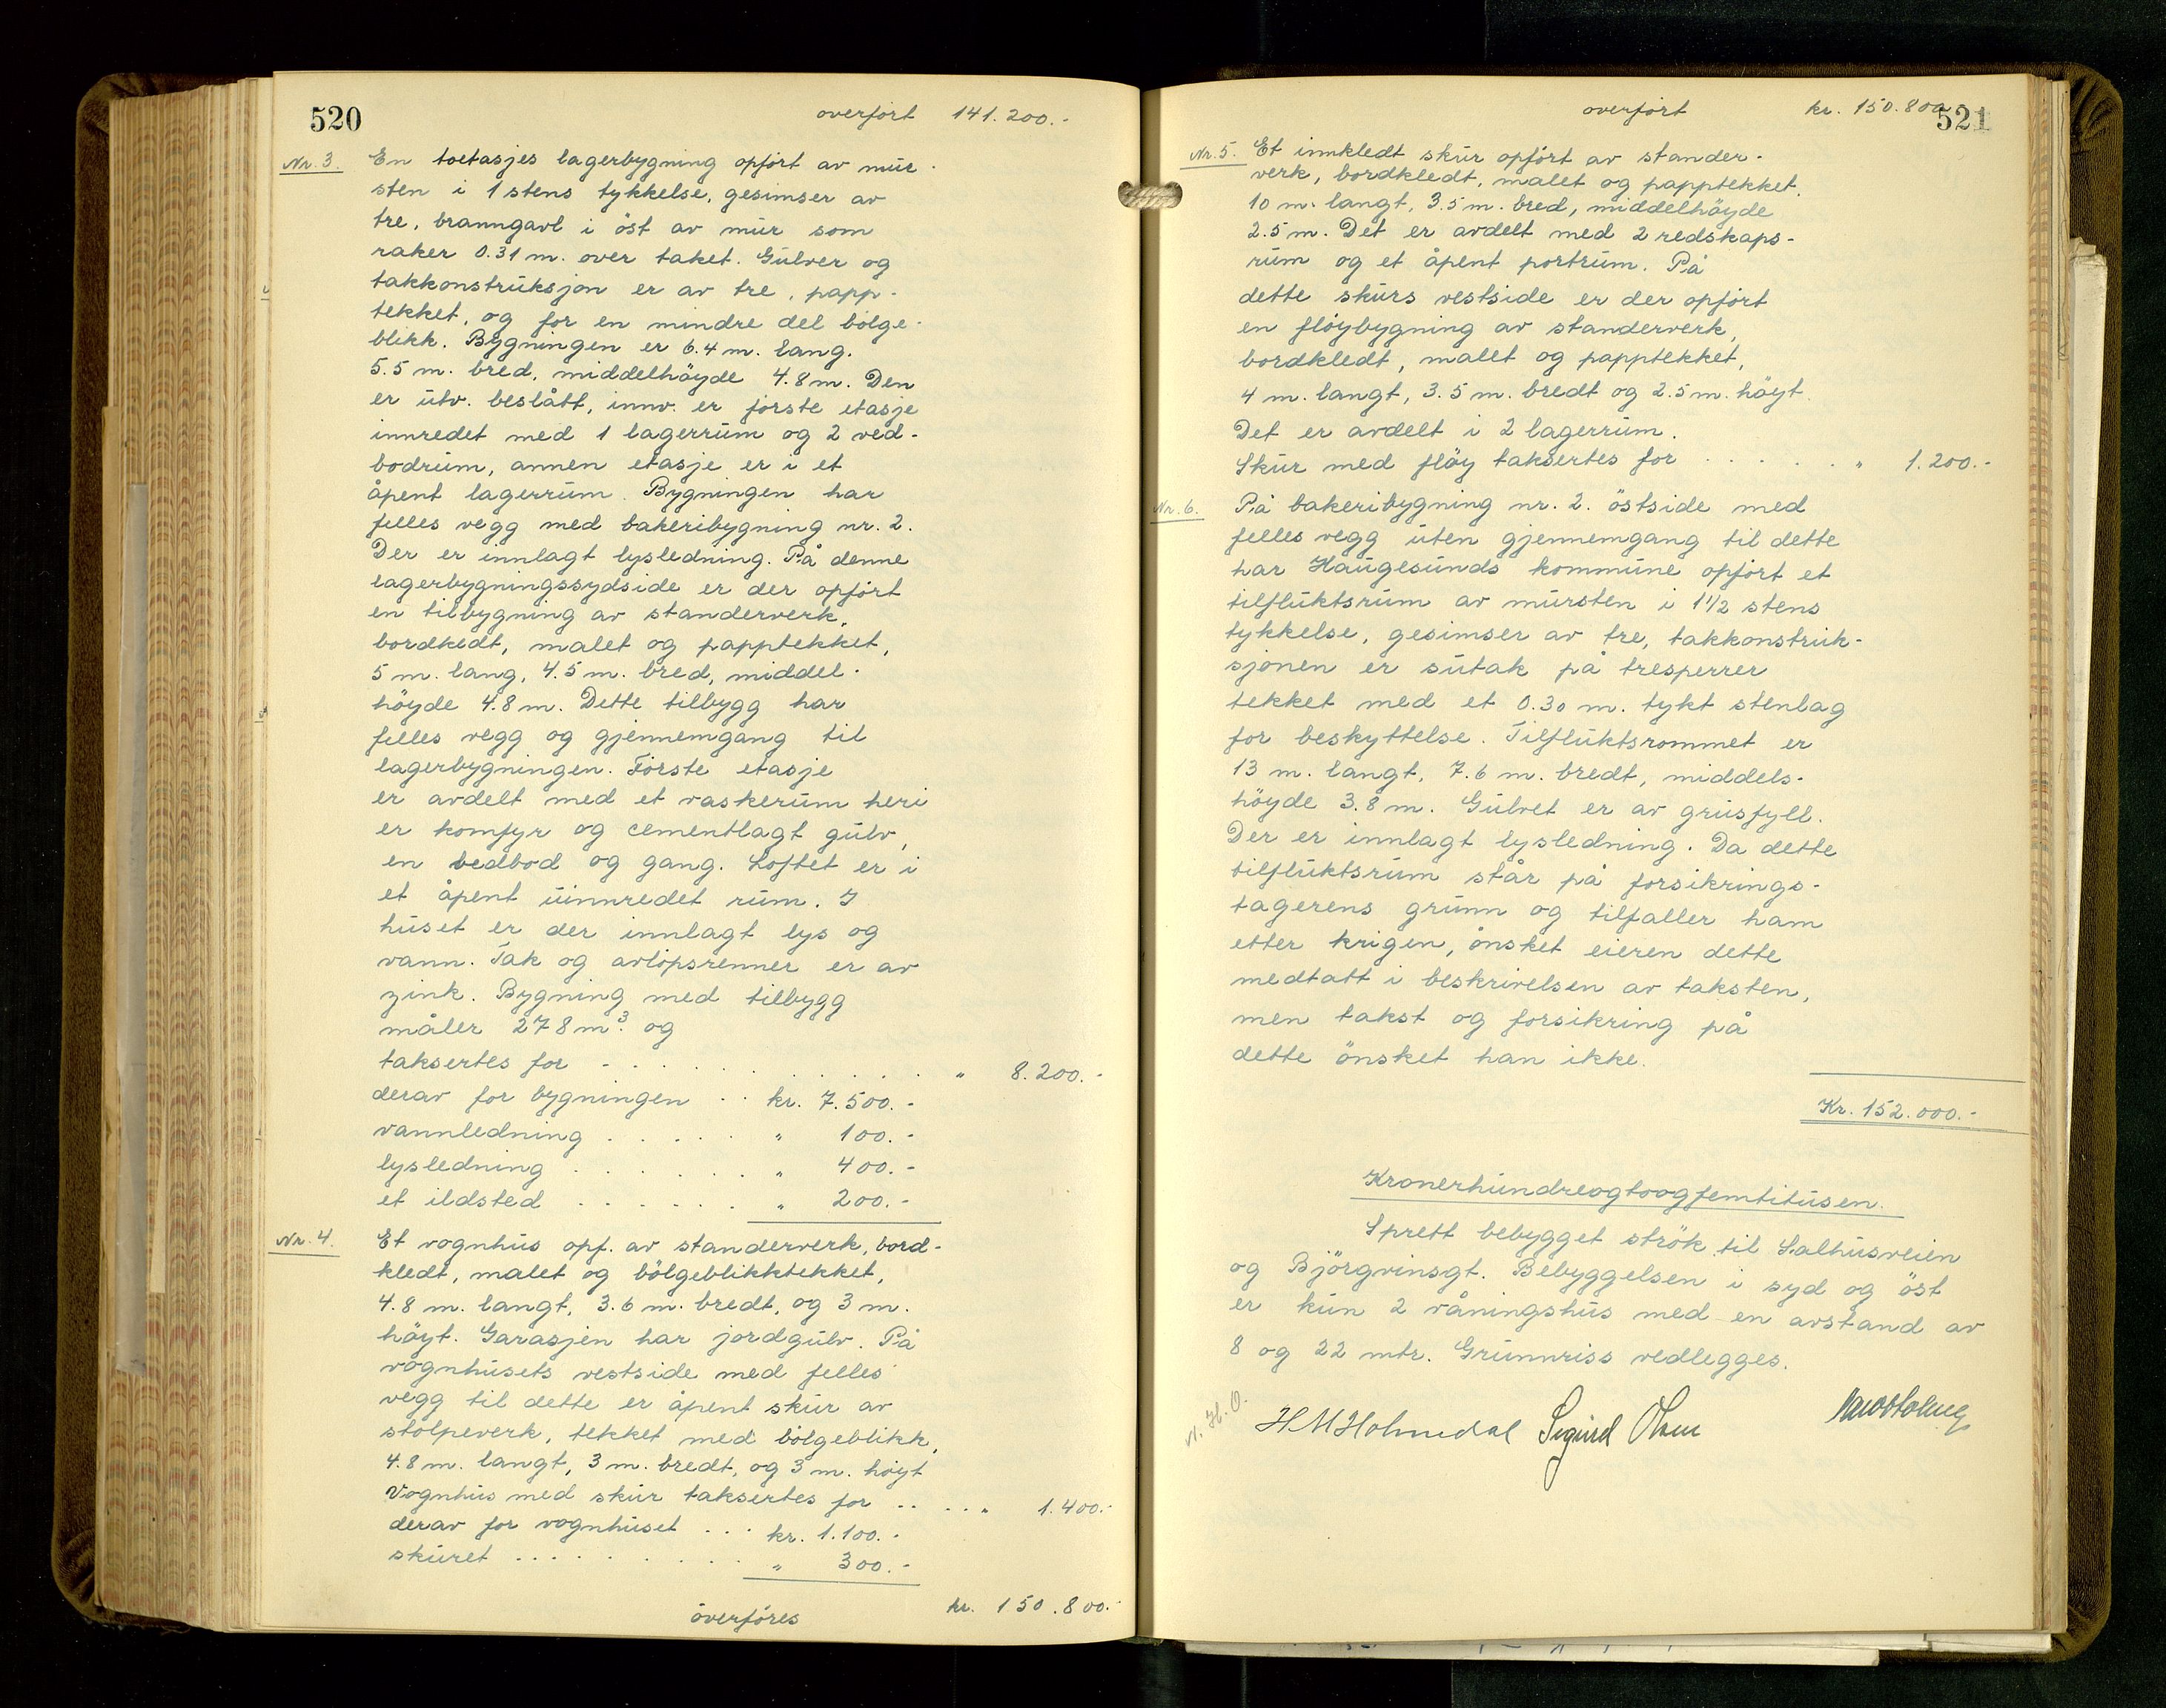 520
overført 141.200.-
Nr. 3. En toetasjes lagerbygning opført av mur-
sten i 1 stens tykkelse, gesimser av
tre, branngavl i öst av mur som
raker 0.31 m. over taket. Gulver og
takkonstruksjon er av tre, papp-
tekket, og for en mindre del bölge-
blikk. Bygningen er 6.4 m. lang.
5.5 m. bred, middelhöyde 4.8 m. Den
er utv. beslått, innv. er første etasje
innredet med 1 lagerrum og 2 ved-
bodrum, annen etasje er i et
åpent lagerrum. Bygningen har
felles vegg med bakeribygning nr. 2.
Der er innlagt lysledning. På denne
lagerbygningssydside er der opført
en tilbygning av standerverk,
bordkedt, malet og papptekket,
5 m. lang, 4.5 m. bred, middel-
höyde 4.8 m. Dette tilbygg har
felles vegg og gjennemgang til
lagerbygningen. Förste etasje
er avdelt med et vaskerum heri
er komfyr og cementlagt gulv,
en vedbod og gang. Loftet er i
et åpent uinnredet rum. I
huset er der innlagt lys og
vann. Tak og avlöpsrenner er av
zink. Bygning med tilbygg
måler 278 m³. og
taksertes for - . . . . . . . . . . " 8.200.-
derav for bygningen . . kr. 7.500.-
vannledning . . . . . " 100.-
lysledning . . . . . . " 400.-
et ildsted . . . . . . " 200.-
Nr. 4. Et vognhus opf. av standerverk, bord-
kledt, malet og bölgeblikktekket,
4.8 m. langt, 3.6 m. bredt, og 3 m.
höyt. Garasjen har jordgulv. På
vognhusets vestside med felles
vegg til dette er åpent skur av
stolpeverk, tekket med bölgeblikk,
4.8 m. langt, 3 m. bredt, og 3 m. höyt
Vognhus med skur taksertes for . . . . " 1.400.-
derav for vognhuset . . . kr. 1.100.-
skuret . . . . . . . . . " 300.-
överföres kr. 150.800.-
521
overført kr. 150.800
Nr. 5. Et innkledt skur opfört av stander-
verk, bordkledt, malet og papptekket,
10 m. langt, 3.5 m. bred, middelhöyde
2.5 m. Det er avdelt med 2 redskaps-
rum og et åpent portrum. På
dette skurs vestside er der opført
en flöybygning av standerverk,
bordkledt, malet og papptekket,
4 m. langt, 3.5 m. bredt og 2.5 m. höyt.
Det er avdelt i 2 lagerrum.
Skur med flöy taksertes for . . . . . . " 1.200.-
Nr. 6. På bakeribygning nr. 2. östside med
felles vegg uten gjennemgang til dette
har Haugesunds kommune opført et
tilfluktsrum av mursten i 1 1/2 stens
tykkelse, gesimser av tre, takkonstruk-
sjonen er sutak på tresperrer
tekket med et 0.30 m. tykt stenlag
for beskyttelse. Tilfluktsrommet er
13 m. langt, 7.6 m. bredt, middels-
höyde 3.8 m. Gulvet er av grusfyll.
Der er innlagt lysledning. Da dette
tilfluktsrum står på forsikrings-
tagerens grunn og tilfaller ham
etter krigen, önsket eieren dette
medtatt i beskrivelsen av taksten,
men takst og forsikring på
dette önsket han ikke.
Kr. 152.000.-
Kronerhundreogtoogfemtitusen.
Sprett bebygget strök til Salhusveien
og Björgvinsgt. Bebyggelsen i syd og öst
er kun 2 våningshus med en avstand av
8 og 22 mtr. Grunnriss vedlegges.
N. H. O.
H M Holmedal Sigurd Olsen